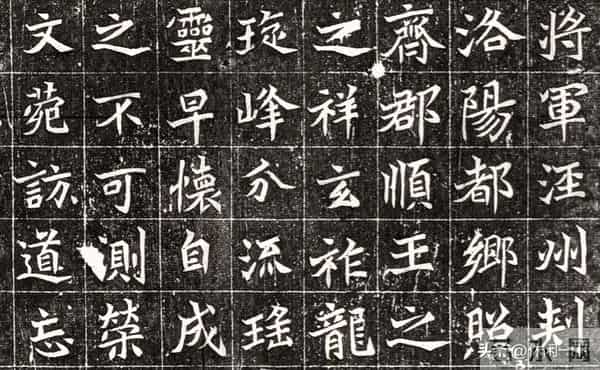 將軍涇州刾
洛陽都鄉照
齊郡順王之
之祥玄祚龍
琁峰分流瑤
靈早懷自成
之不可測榮
文菀訪道忘
头条@